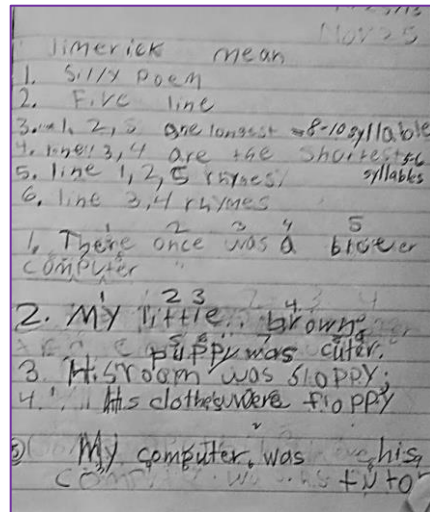 Nov 25
limerick mean
1. Silly Poem
2. Five line
3. 1, 2, 5 are longest 8-10 syllable
4. line! 3, 4 are the shortest 5-6 syllables
5. line 1, 2, 5 rhymes
6. line 3,4 rhymes
1 2 3 4 5
1. There once was a
computer
2 3 4
2. My little brown
puppy was cuter.
3. His room was sloppy;
4. His clothes were floppy
5 My computer was his
tutor